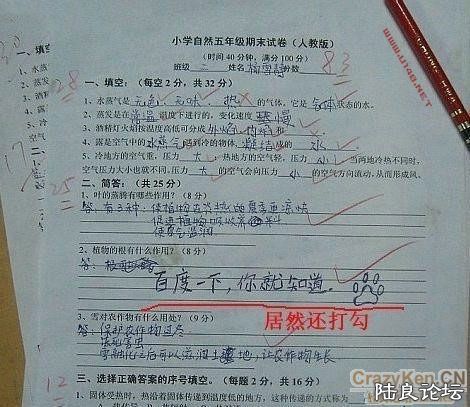 小学自然五年级期末试卷（人教版）
（时间40分钟，满分100分）
班级 三 姓名 分数 83
28
一、填空：（每空2分，共32分）
1、水蒸气是无色、无味、 的气体，它是气体状态的水。
2、蒸发是在常温温度下进行的，变化速度 慢
3、酒精灯火焰按温度高低可分成外焰
4、露是空气中的水蒸气遇到冷的物体，凝结成的水
5、冷地方的空气重，压力大，热地方的空气轻，压力小，当两地冷热不同时，
空气压力大小也就不同，压力大的空气会向压力小的空气方向流动，从而形成风。
25
二、简答：（共25分）
1、叶的蒸腾有哪些作用？（8分）
答：有3种：保植物在炎热的夏季更凉快
促进植物吸收
使空气湿润
2、植物的根有什么作用？（8分）
答：
百度一下，你就知道。
居然还打勾
3、雪对农作物有什么用处？（9分）
答：保护农作物过冬
冻死害虫
雪融化之后可以滋润土地，让农作物生长.
12
三、选择正确答案的序号填空。（每题2分，共16分）
1、固体受热时，热沿着固体传递到温度低的地方，这种传热的方式
一、填
1、水蒸
2、蒸发
3、酒精
4、露
5、冷
空气
17
二、
WWW.U148.NET
CrazyKen.CN
陆良论坛